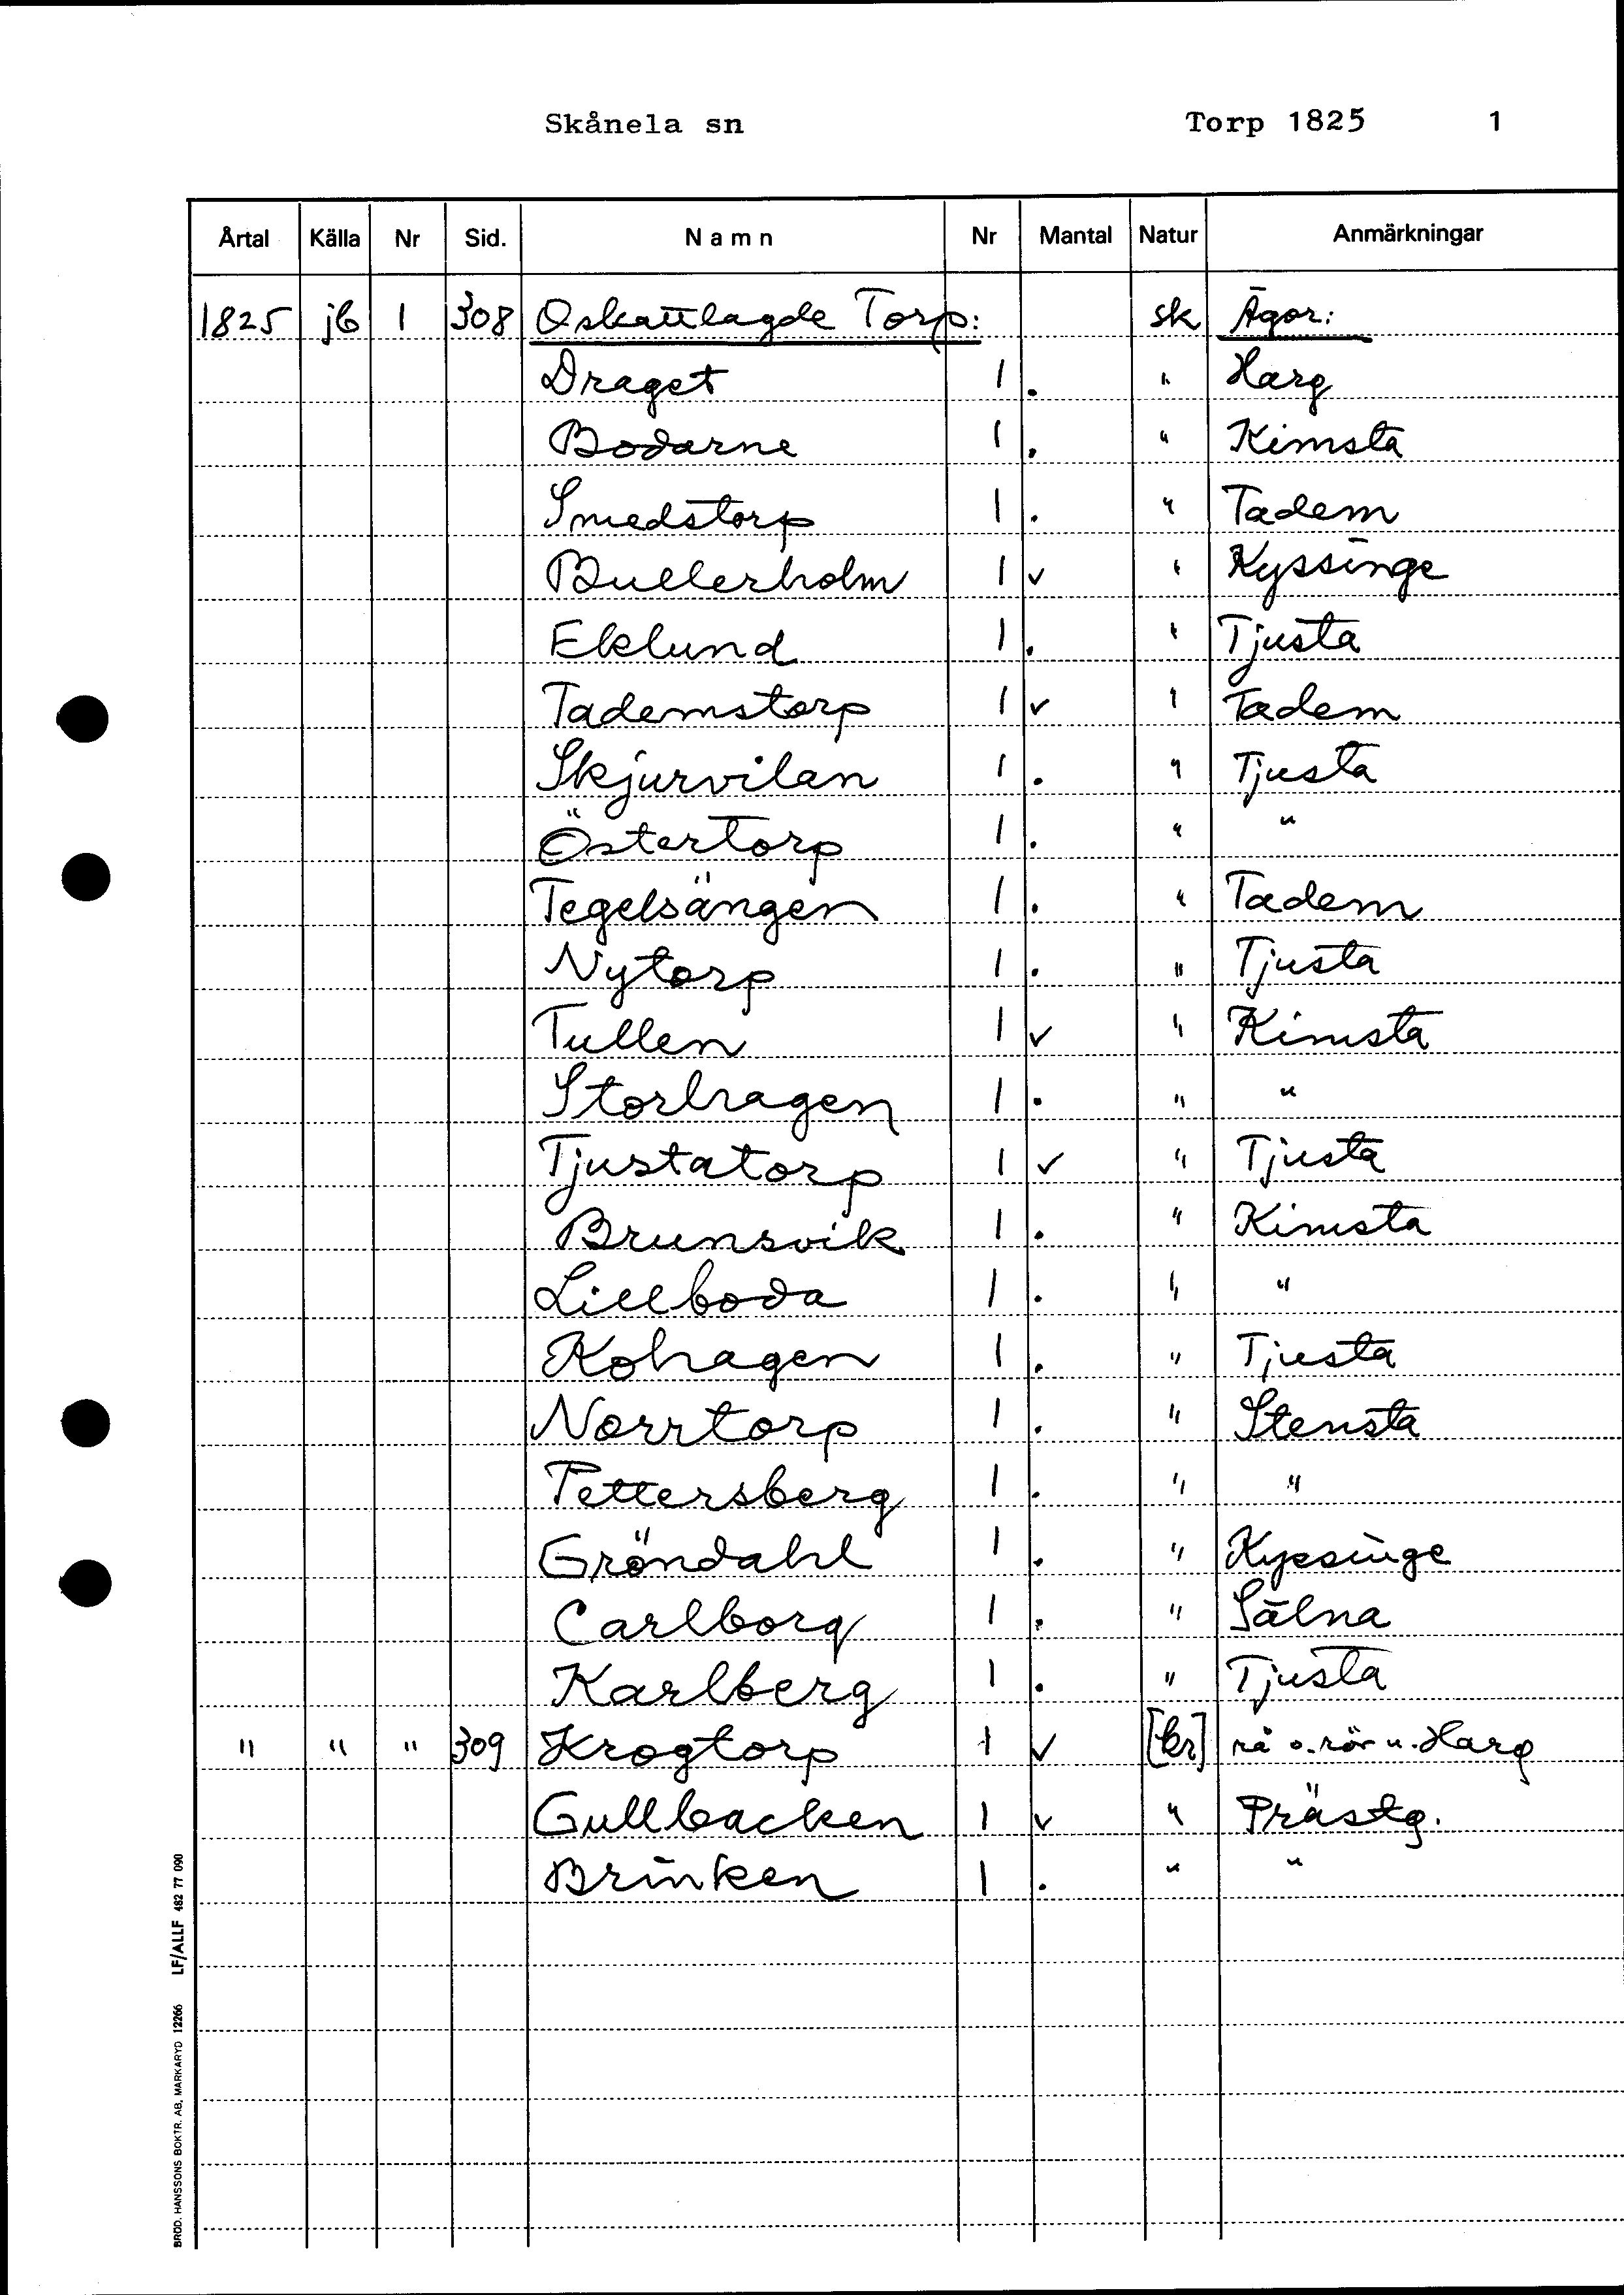 Skånela sn Torp 1825 1
Årtal Källa Nr Sid. Namn Nr Mantal Natur Anmärkningar
1825 jb 1 308 Oskattlagde Torp: sk Ägor:
Draget 1 . " Harg
Bodarne 1 . " Kimsta
Smedstorp 1 . " Tadem
Bullerholm 1 ✓ " Kyssinge
Eklund 1 . " Tjusta
Tademstorp 1 ✓ " Tadem
Skjurvilan 1 . " Tjusta
Östertorp 1 . " "
Tegelsängen 1 . " Tadem
Nytorp 1 . " Tjusta
Tullen 1 ✓ " Kimsta
Storhagen 1 . " "
Tjustatorp 1 ✓ " Tjusta
Brunsvik 1 . " Kimsta
Lillboda 1 . " "
Kohagen 1 . " Tjusta
Norrtorp 1 . " Stensta
Pettersberg 1 . " "
Gröndahl 1 . " Kyssinge
Carlborg 1 . " Sälna
Karlberg 1 . " Tjusta
" " " 309 Krogtorp 1 ✓ [kr] rå o. rör u. Harg
Gullbacken 1 ✓ " Prästg.
Brinken 1 . " "
BROD. HANSSONS BOKTR. AB, MARKARYD 12266 LF/ALLF 482 77 090